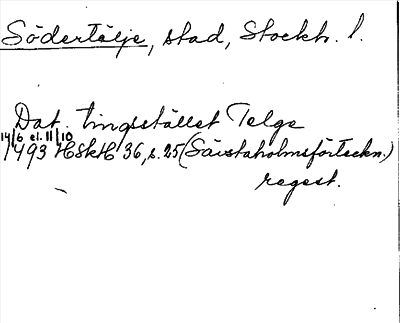 Södertälje, stad, Stockh. l.
Dat. tingstället Telge
14/6 el. 11/10
1493 HSkH 36, s. 25 (Säistaholmsförteckn.)
regest.